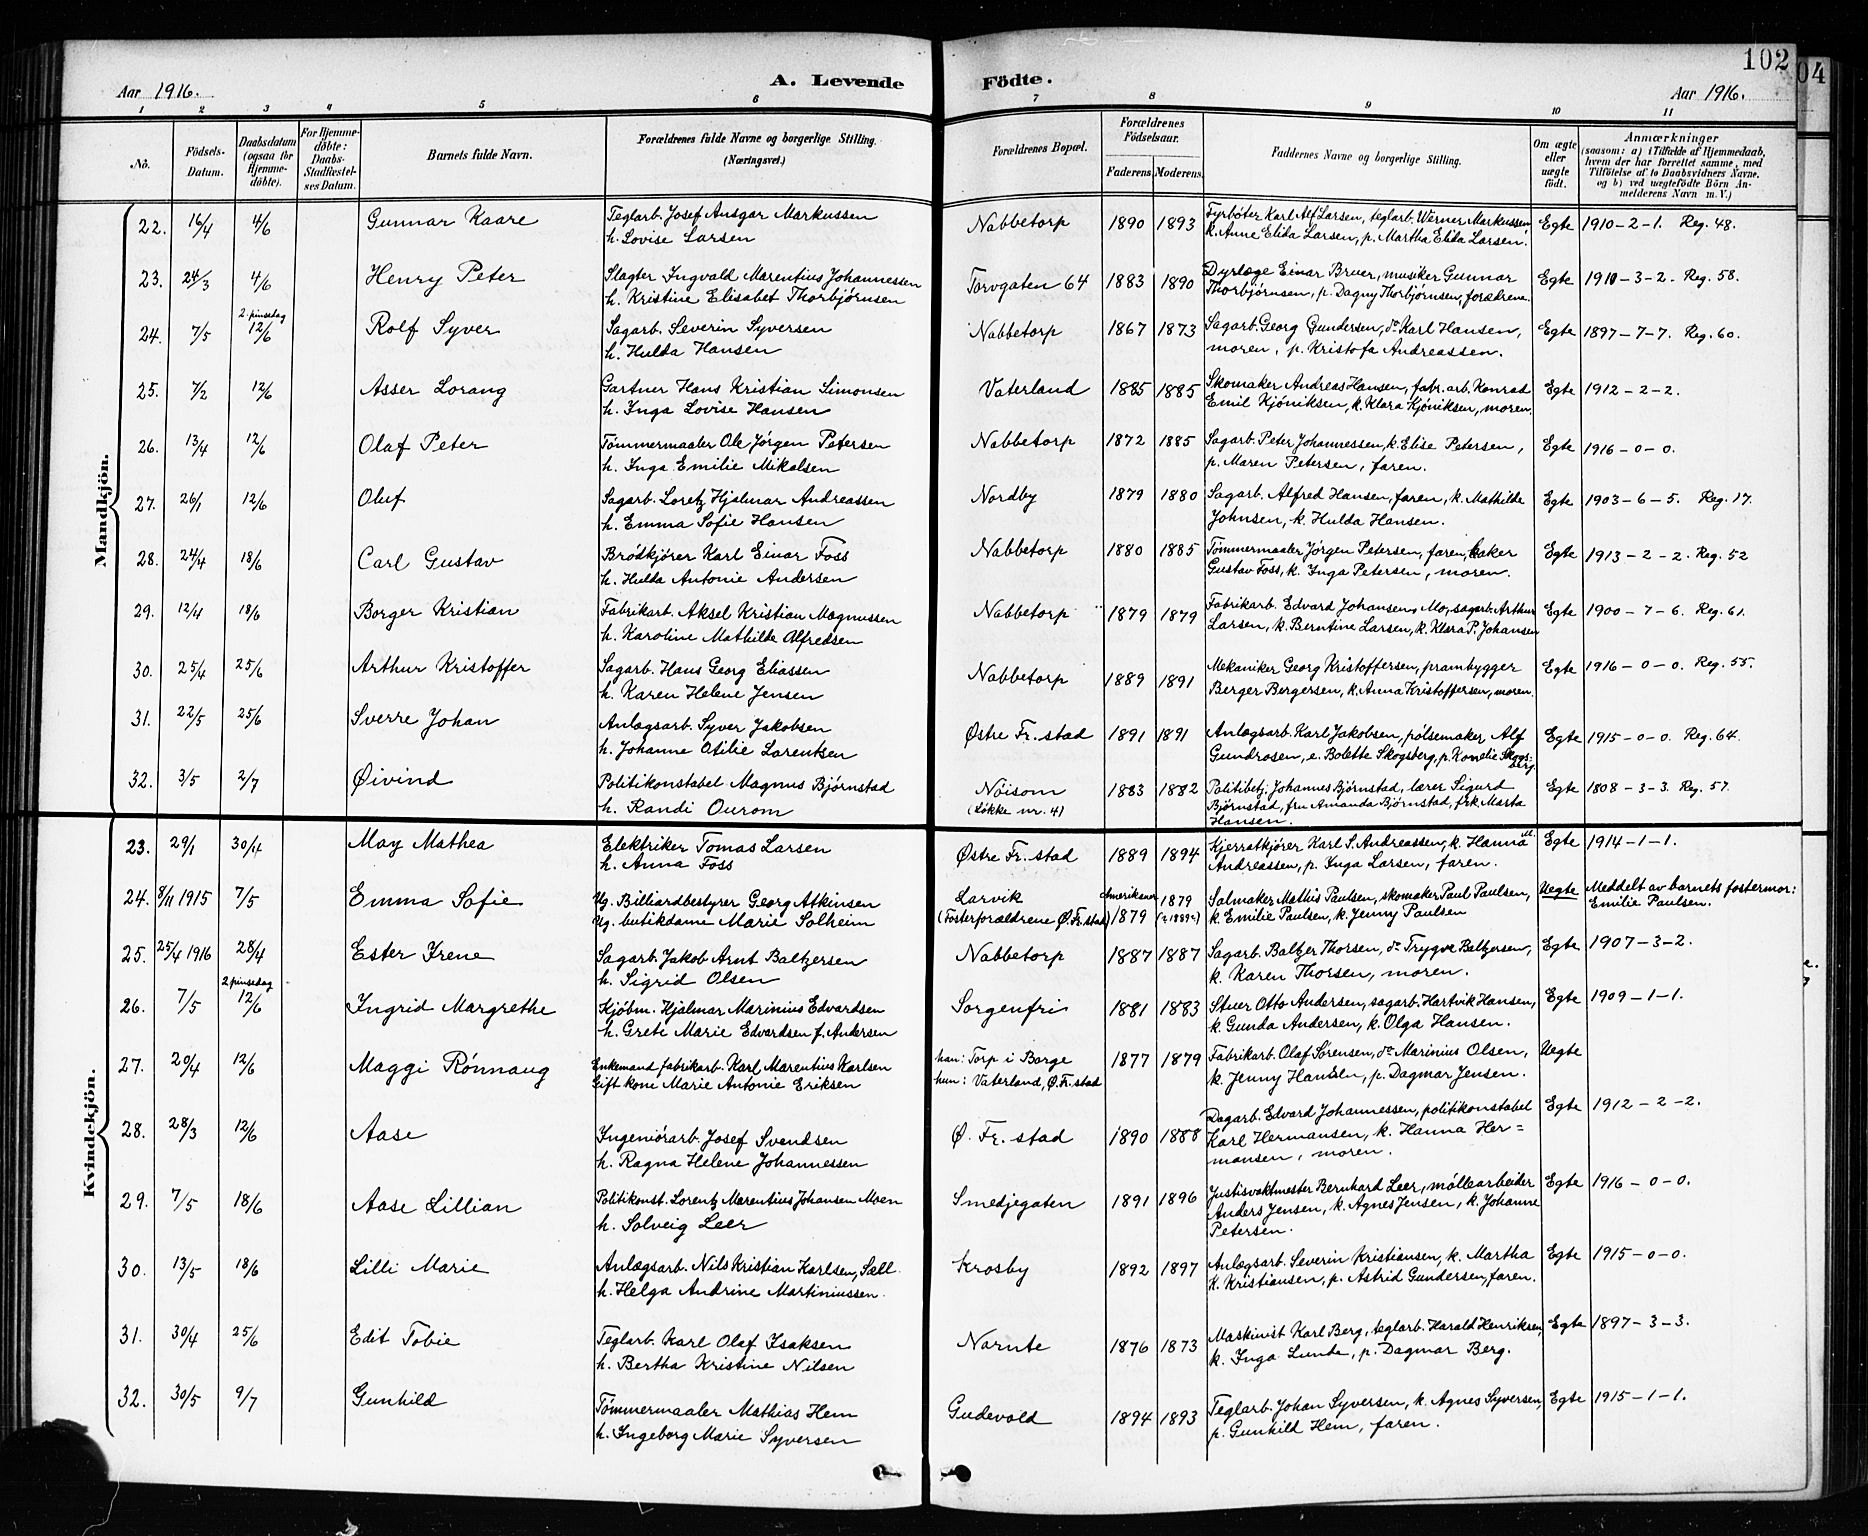 102
04
Aar 1916.
A. Levende
Födte.
Aar 1916.
1 2 3 4 5 6 7 8 9 10 11
No.
Födsels-Datum.
Daabsdatum (ogsaa for Hjemme-döbte).
For Hjemme-döbte: Daabs-Stadfæstel-ses Datum.
Barnets fulde Navn.
Forældrenes fulde Navne og borgerlige Stilling. (Næringsvei.)
Forældrenes Bopæl.
Forældrenes Födselsaar.
Faderens Moderens
Faddernes Navne og borgerlige Stilling.
Om ægte eller uægte födt.
Anmærkninger (saasom: a) i Tilfælde af Hjemmedaab, hvem der har forrettet samme, med Tilföielse af to Daabsvidners Navne. og b) ved uægtefödte Börn An-melderens Navn m. V.)
Mandkjön.
22. 16/4 4/6 Gunnar Kaare Teglarb. Josef Ansgar Markussen Nabbetorp 1890 1893 Fyrböter Karl Alf Larsen, teglarb. Werner Markussen Egte 1910-2-1. Reg. 48.
h. Lovise Larsen k. Anne Elida Larsen, p. Martha Elida Larsen.
23. 24/3 4/6 Henry Peter Slagter Ingvald Marentius Johannessen Torvgaten 64 1883 1890 Dyrlæge Einar Bruer, musiker Gunnar Egte 1910-3-2. Reg. 58.
h. Kristine Elisabet Thorbjörnsen Thorbjörnsen, p. Dagny Thorbjörnsen, forældrene.
2. pinsedag
24. 7/5 12/6 Rolf Syver Sagarb. Severin Syversen Nabbetorp 1867 1873 Sagarb. Georg Gundersen, do Karl Hansen, Egte 1897-7-7. Reg. 60.
h. Hulda Hansen moren, p. Kristofa Andreassen.
25. 7/2 12/6 Asser Lorang Gartner Hans Kristian Simonsen Vaterland 1885 1885 Skomaker Andreas Hansen, fabr. arb. Konrad Egte 1912-2-2.
h. Inga Lovise Hansen Emil Kjöniksen, k. Klara Kjöniksen, moren.
26. 13/4 12/6 Olaf Peter Tömmermaaler Ole Jörgen Petersen Nabbetorp 1872 1885 Sagarb. Peter Johannessen, k. Elise Petersen, Egte 1916-0-0.
h. Inga Emilie Mikalsen p. Maren Petersen, faren.
27. 26/1 12/6 Oluf Sagarb. Loretz Hjalmar Andreassen Nordby 1879 1880 Sagarb. Alfred Hansen, faren, k. Mathilde Egte 1903-6-5. Reg. 17.
h. Emma Sofie Hansen Johnsen, k. Hulda Hansen.
28. 24/4 18/6 Carl Gustav Brödkjörer Karl Einar Foss Nabbetorp 1880 1885 Tömmermaaler Jörgen Petersen, faren, baker Egte 1913-2-2. Reg. 52
h. Hulda Antonie Andersen Gustav Foss, k. Inga Petersen, moren.
29. 12/4 18/6 Borger Kristian Fabrikarb. Aksel Kristian Magnussen Nabbetorp 1879 1879 Fabrikarb. Edvard Johansen, Mo, sagarb. Arthur Egte 1900-7-6. Reg. 61.
h. Karoline Mathilde Alfredsen Larsen, k. Berntine Larsen, k. Klara P. Johansen
30. 25/4 25/6 Arthur Kristoffer Sagarb. Hans Georg Eliassen Nabbetorp 1889 1891 Mekaniker Georg Kristoffersen, prambygger Egte 1916-0-0. Reg. 55.
h. Karen Helene Jensen Berger Bergersen, k. Anna Kristoffersen, moren.
31. 22/5 25/6 Sverre Johan Anlægsarb. Syver Jakobsen Østre Fr.stad 1891 1891 Anlægsarb. Karl Jakobsen, pölsemaker Alf Egte 1915-0-0. Reg. 64.
h. Johanne Otilie Larentsen Gundrosen, e. Bolette Skogsberg, p. Kornelie Skogs-berg
32. 3/5 2/7 Øivind Politikonstabel Magnus Björnstad Nöisom 1883 1882 Politibetj. Johannes Björnstad, lærer Sigurd Egte 1808-3-3. Reg. 57.
h. Randi Ourom (Lökke nr. 4) Björnstad, fru Amanda Björnstad, frk. Marta Hansen.
Kvindekjön.
23. 29/1 30/4 May Mathea Elektriker Tomas Larsen Østre Fr.stad 1889 1894 Kjerratkjörer Karl S. Andreassen, k. Hanna M. Egte 1914-1-1.
h. Anna Foss Andreassen, p. Inga Larsen, faren.
24. 8/11 1915 7/5 Emma Sofie Ug. Billiardbestyrer Georg Atkinsen Larvik Amerikaner 1879 1879 Salmaker Mathis Paulsen, skomaker Paul Paulsen, Uegte Meddelt av barnets fostermor:
Ug. butikdame Marie Solheim (Fosterforældrene Ø.Fr.stad) k. Emilie Paulsen, k. Jenny Paulsen Emilie Paulsen.
25. 25/4 1916 28/4 Ester Irene Sagarb. Jakob Arnt Baltzersen Nabbetorp 1887 1887 Sagarb. Baltzer Thorsen, do Trygve Baltzersen, Egte 1907-3-2.
h. Sigrid Olsen k. Karen Thorsen, moren.
2 pinsedag
26. 7/5 12/6 Ingrid Margrethe Kjöbm. Hjalmar Marinius Edvardsen Sorgenfri 1881 1883 Stuer Otto Andersen, sagarb. Hartvik Hansen, Egte 1909-1-1.
h. Grete Marie Edvardsen f. Andersen k. Gunda Andersen, k. Olga Hansen.
27. 20/4 12/6 Maggi Rönnaug Enkemand fabrikarb. Karl Marentius Karlsen han: Torp i Borge 1877 1879 Fabrikarb. Olaf Sörensen, do Marinius Olsen, Uegte
Gift kone Marie Antonie Eriksen hun: Vaterland, Ø.Fr.stad k. Jenny Hansen, p. Dagmar Jensen.
28. 28/3 12/6 Aase Ingeniörarb. Josef Svendsen Ø. Fr.stad 1890 1888 Dagarb. Edvard Johannessen, politikonstabel Egte 1912-2-2.
h. Ragna Helene Johannessen Karl Hermansen, k. Hanna Her=mansen, moren.
29. 7/5 18/6 Aase Lillian Politikonst. Lorentz Marentius Johansen Moen Smedjegaten 1891 1896 Justisvaktmester Bernhard Leer, möllearbeider Egte 1916-0-0.
h. Solveig Leer Anders Jensen, k. Agnes Jensen, k. Johanne Petersen.
30. 13/5 18/6 Lilli Marie Anlægsarb. Nils Kristian Karlsen, Sæll. Krosby 1892 1897 Anlægsarb. Severin Kristiansen, k. Martha Egte 1915-0-0.
h. Helga Andrine Martiniussen. K. Kristiansen, p. Astrid Gundersen, faren.
31. 30/4 25/6 Edit Tobie Teglarb. Karl Olaf Isaksen Narnte 1876 1873 Maskinist Karl Berg, teglarb. Harald Henriksen, Egte 1897-3-3.
h. Bertha Kristine Nilsen k. Inga Lunde, p. Dagmar Berg.
32. 30/5 9/7 Gunhild Tömmermaaler Mathias Hem Gudevold 1894 1893 Teglarb. Johan Syversen, k. Agnes Syversen, Egte 1915-1-1.
h. Ingeborg Marie Syversen p. Gunhild Hem, faren.